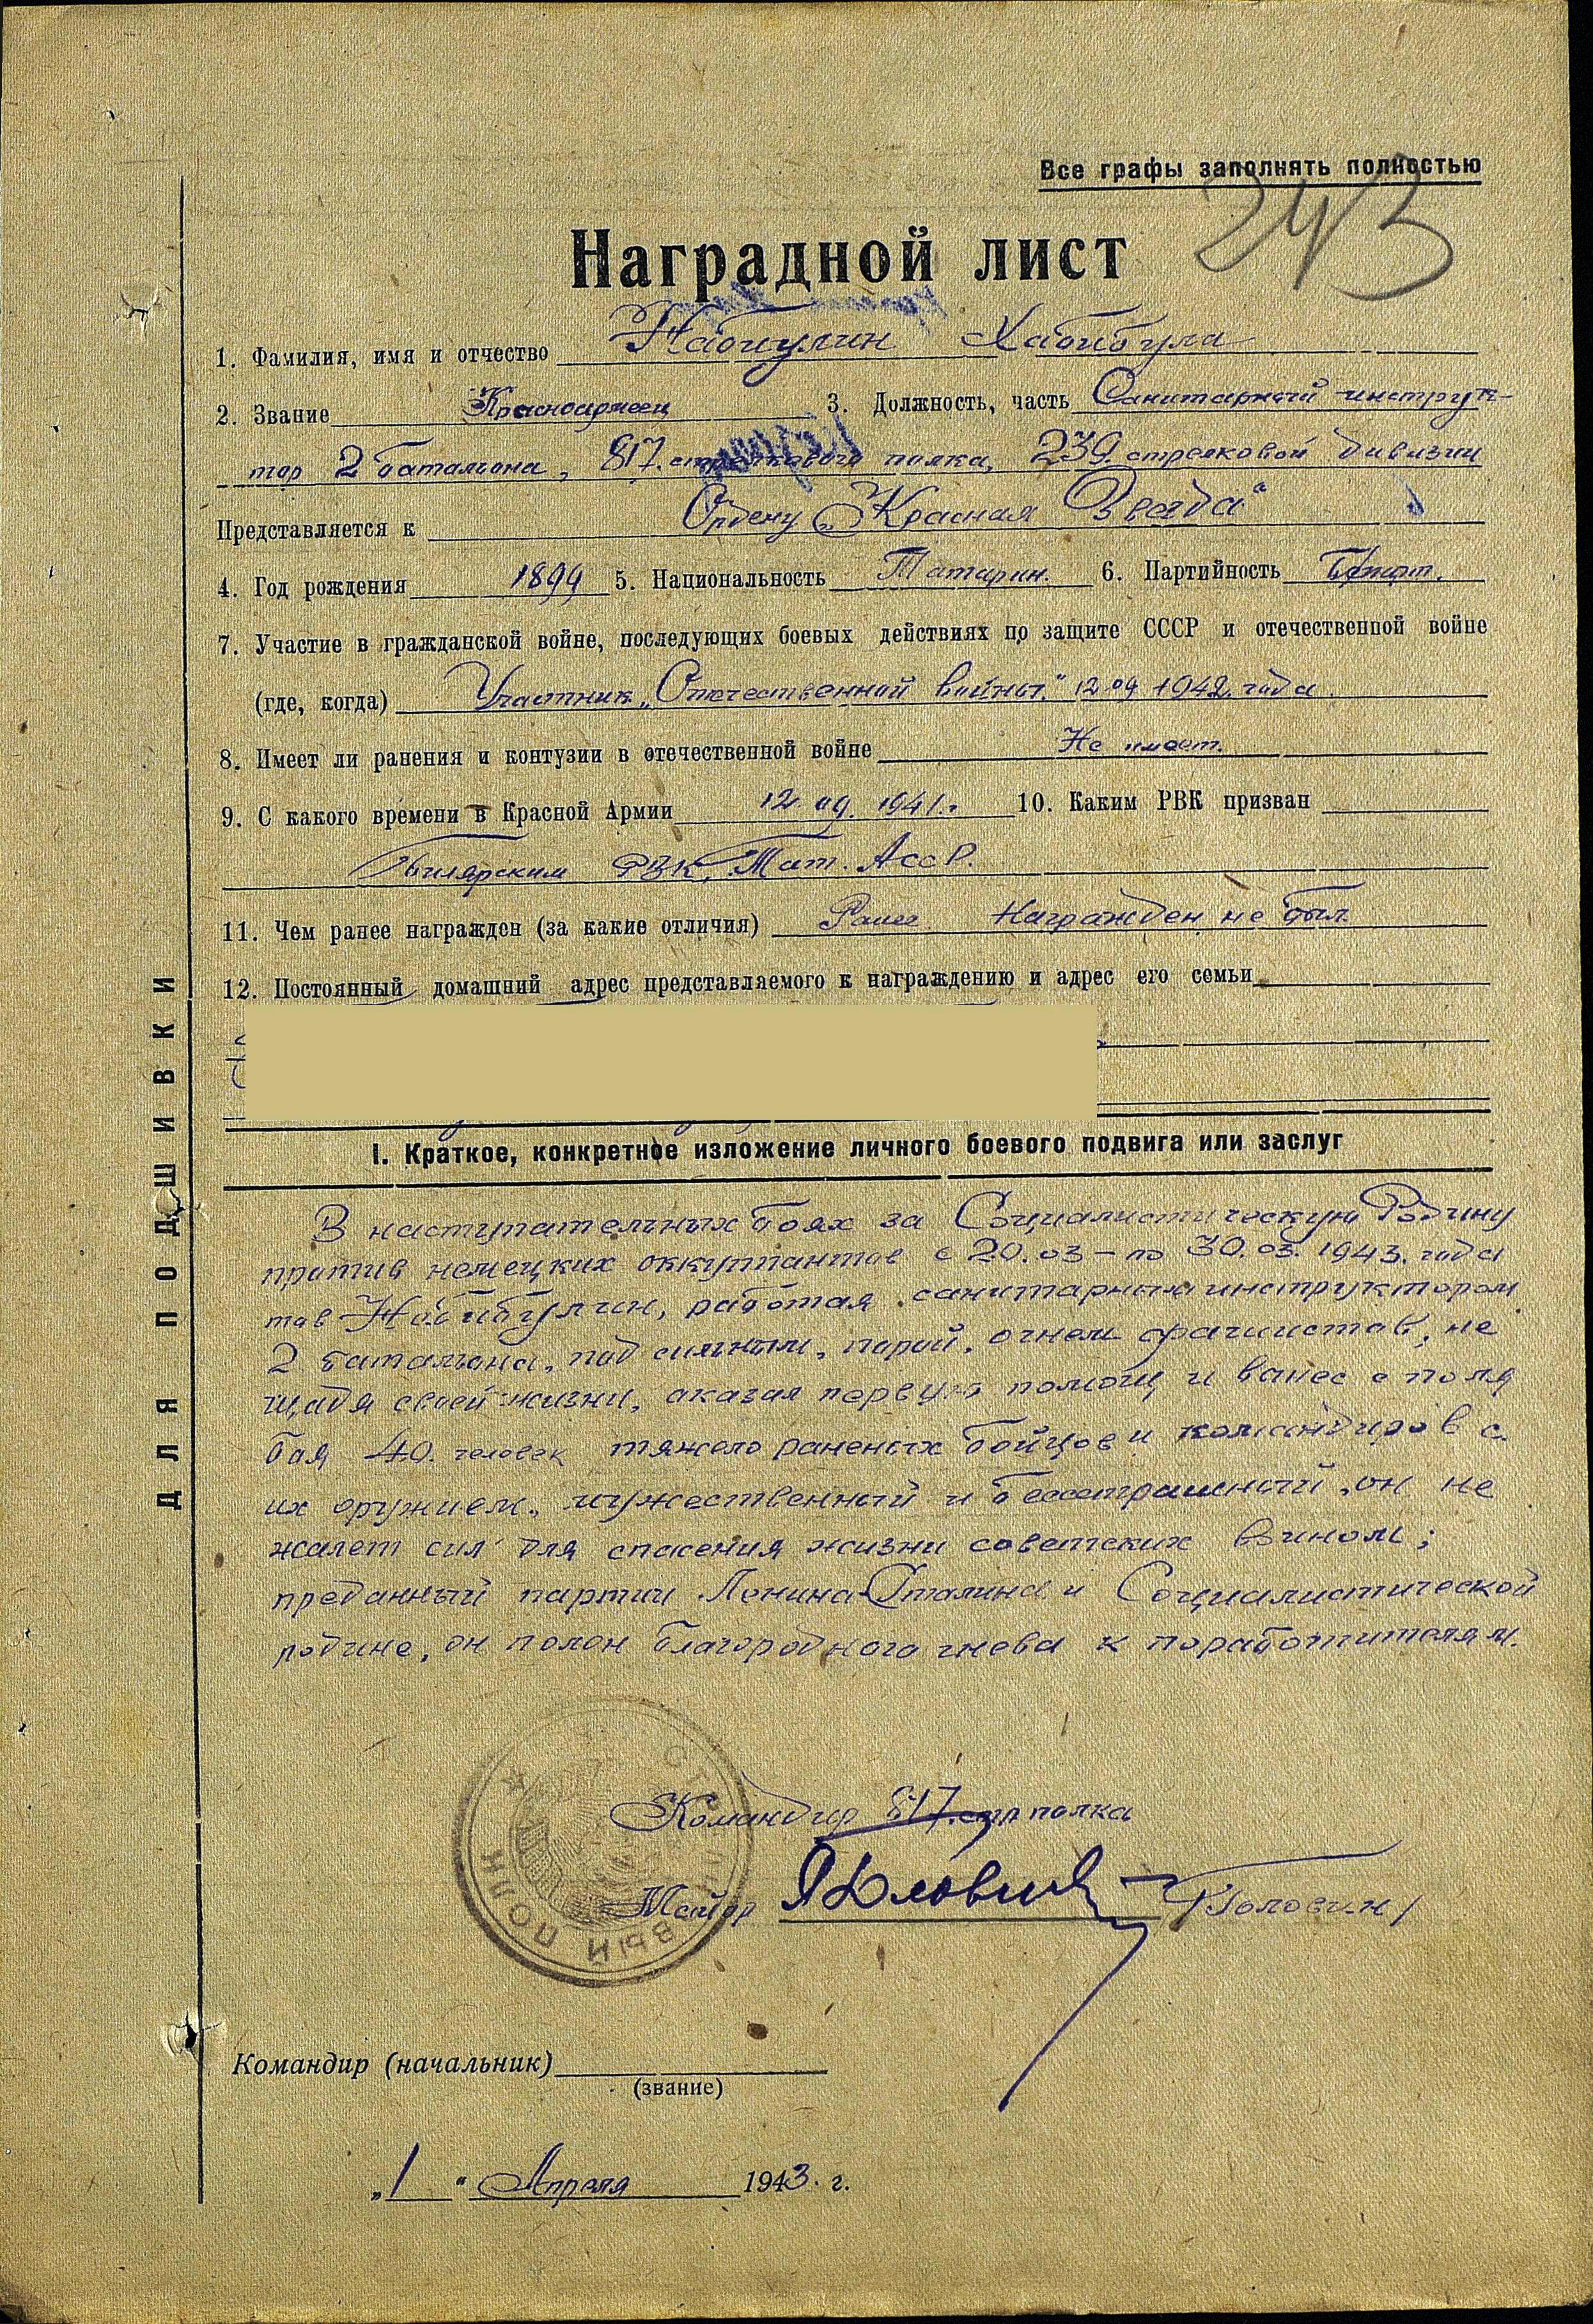 Все графы заполнять полностью
243
Наградной лист
1. Фамилия, имя и отчество Набиулин Хабибула
2. Звание Красноармеец 3. Должность, часть Санитарный инструк-
тор 2 батальона, 817. стрелкового полка, 239 стрелковой дивизии
Представляется к Ордену „Красная Звезда"
4. Год рождения 1899 5. Национальность Татарин. 6. Партийность
7. Участие в гражданской войне, последующих боевых действиях по защите СССР и отечественной войне
(где, когда) Участник „Отечественной войны." 12 09 1942. года.
8. Имеет ли ранения и контузии в отечественной войне Не имеет.
9. С какого времени в Красной Армии 12. 09. 1941 г. 10. Каким РВК призван
Билярским РВК, Тат. АссР.
11. Чем ранее награжден (за какие отличия) Ранее Награжден не был
12. Постоянный домашний адрес представляемого к награждению и адрес его семьи
I. Краткое, конкретное изложение личного боевого подвига или заслуг
В наступательных боях за Социалистическую Родину
против немецких оккупантов с 20.03 – по 30.03. 1943. года
тов Набибулин, работая санитарным инструктором
2 батальона, под сильным, огнем фашистов, не
щадя своей жизни, аказал первую помощ и вынес с поля
боя 40. человек тяжело раненых бойцов и командиров с
их оружием. мужественный и бесстрашный, он не
жалет сил для спасения жизни советских воинов;
преданный партии Ленина-Сталина и Социалистической
родине, он полон благородного гнева к поработителям.
Командир 817 стр полка
Майор /Головин/
СТРЕЛКОВЫЙ ПОЛК
Командир (начальник)
(звание)
„1" Апреля 1943. г.
ДЛЯ ПОДШИВКИ